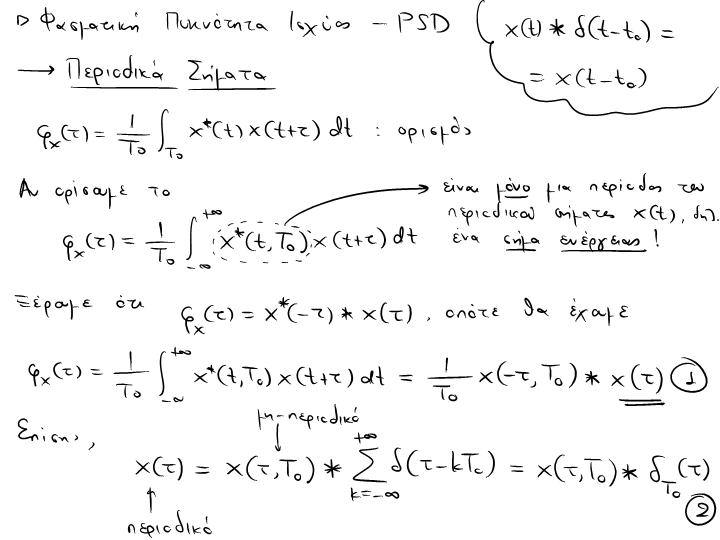 ▷ Φασματική Πυκνότητα Ισχύος – PSD
x(t) * δ(t-t₀) =
= x(t-t₀)
→ Περιοδικά Σήματα
φₓ(τ) = 1/T₀ ∫_{T₀} x*(t) x(t+τ) dt : ορισμός
Αν ορίσουμε το
φₓ(τ) = 1/T₀ ∫_{-∞}^{+∞} x*(t,T₀) x(t+τ) dt
είναι μόνο μια περίοδος του
περιοδικού σήματος x(t), δηλ.
ένα σήμα ενέργειας!
Ξέρουμε ότι φₓ(τ) = x*(-τ) * x(τ), οπότε θα έχουμε
φₓ(τ) = 1/T₀ ∫_{-∞}^{+∞} x*(t,T₀) x(t+τ) dt = 1/T₀ x(-τ,T₀) * x(τ) ①
Επίσης,
μη-περιοδικό
x(τ) = x(τ,T₀) * Σ_{k=-∞}^{+∞} δ(τ-kT₀) = x(τ,T₀) * δ_{T₀}(τ)
②
περιοδικό